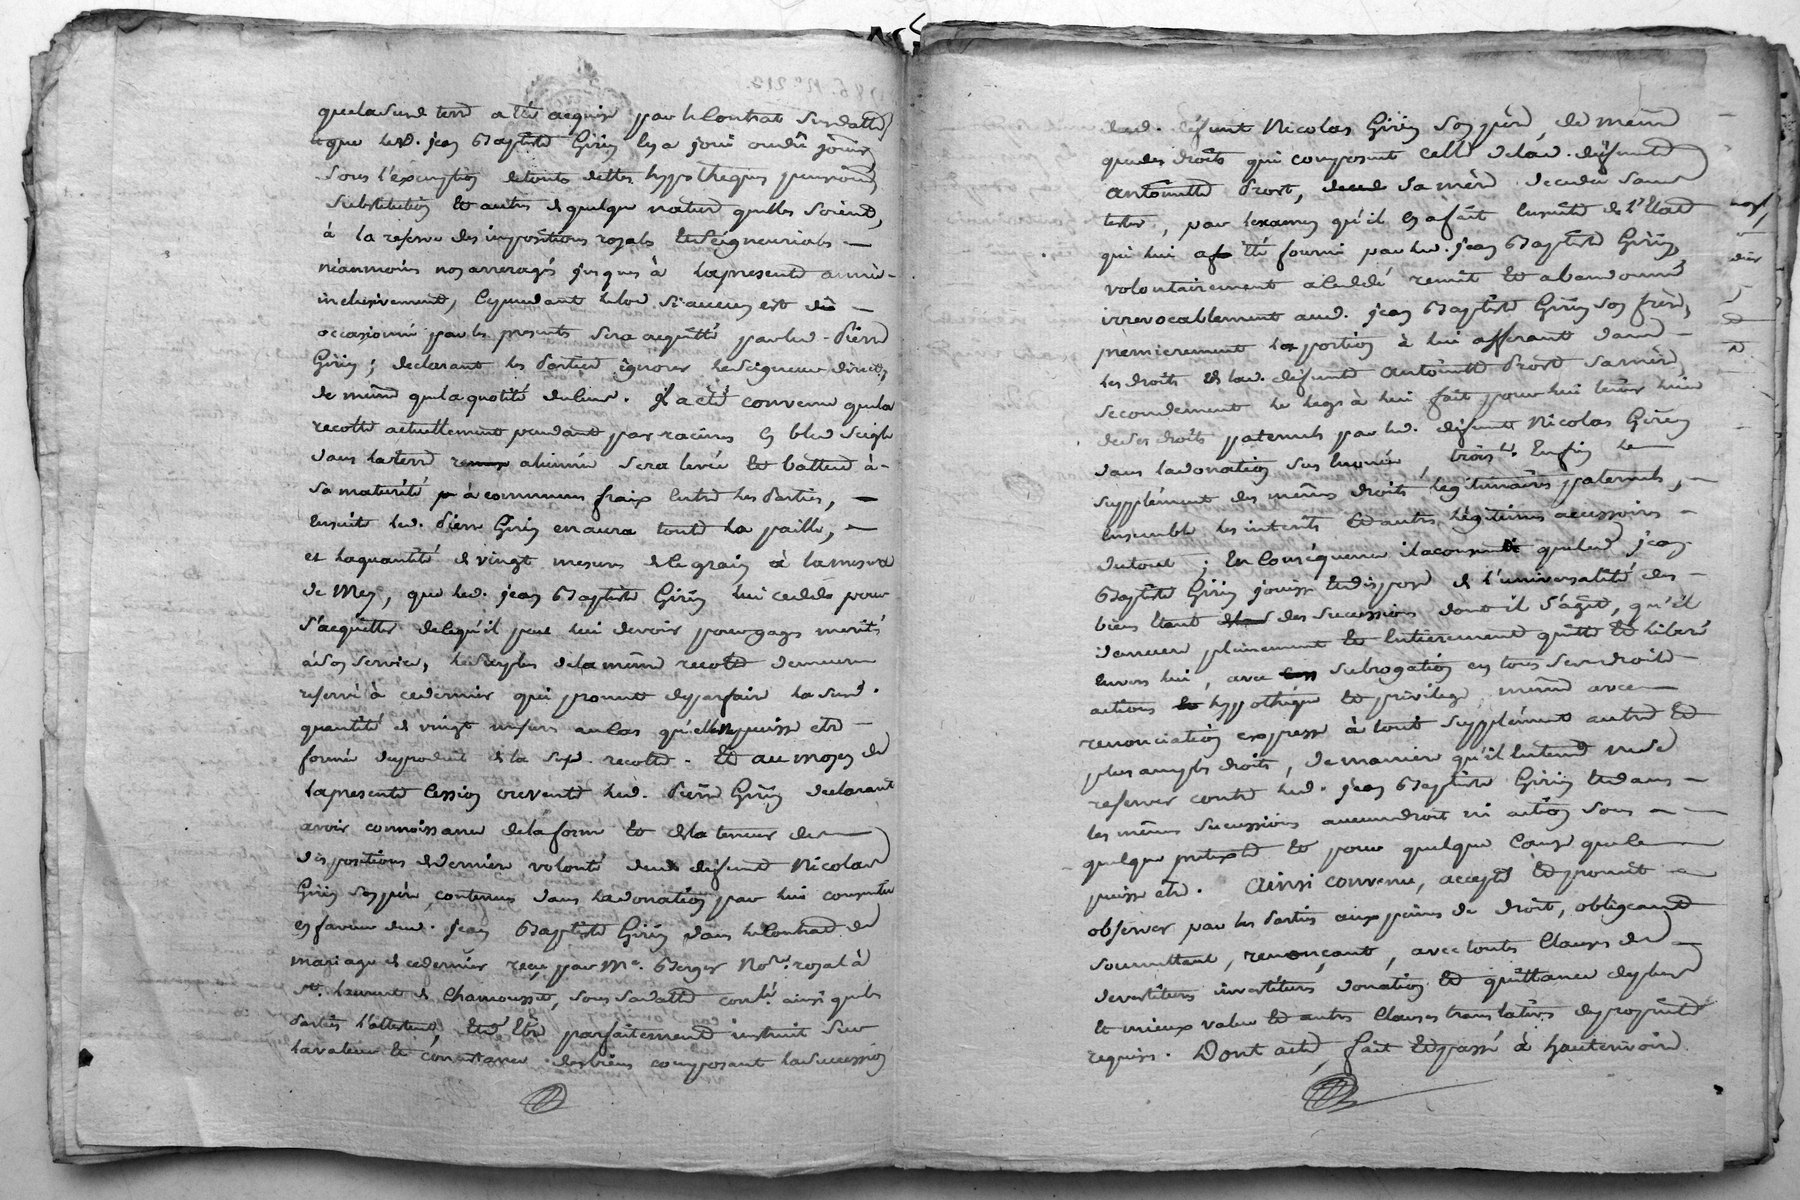 que lad. susd. terre a été acquise par le Contrat susdatté
que led. jean Baptiste Girin les a joui ou dû joüir
sous l'éxemption de toute dettes hypotheques pensions
substitution et autres de quelque nature quelles soient,
à la reserve des impositions royals et seigneurials
néanmoins nos arreragés jusques à la presente année
inclusivement, Cependant le lod si aucun est dû
occasionné par les presentes sera acquitté par led. Pierre
Girin; declarant les Parties ignorer le Seigneur direct,
de même que la quotité du lieu. Il a été convenu que la
recolte actuellement pendante par racines en bled seigle
dans la terre alienée sera levée et battue à
sa maturité à communs fraix entre les Parties,
ensuite led. Pierre Girin en aura toute la paille,
et la quantité de vingt mesures de le grain à la mesure
de Mey, que led. jean Baptiste Girin lui cedde pour
s'acquitter de ce qu'il peut lui devoir pour gages merités
à son service, le surplus de la même recolte demeure
reservé à ce dernier qui promet de parfaire la susd.
quantité de vingt mesures au cas qu'elle ne puisse etre
formée du produit de la susd. recolte. Et au moyen de
la presente Cession et vente led. Pierre Girin declarant
avoir connoissance de la forme et de la teneur des
dispositions de derniere volonté dud. défunt Nicolas
Girin son pere, contenues dans la donation par lui consentie
en faveur dud. jean Baptiste Girin dans le Contrat de
mariage de ce dernier reçu par Me. Berger Nore. royal à
St. Laurent de Chamousset, sous sa datte conlé. ainsi que les
Parties l'attestent, et d'etre parfaitement instruit sur
la valeur et consistance des biens composant la succession
dud. défunt Nicolas Girin son pere, de même
que des droits qui composent celle de lad. défunte
antoinette Prost, sa mère decedée sans
tester, par l'examen qu'il en a fait ensuite de l'Etat
qui lui a été fourni par led. jean Baptiste Girin,
volontairement a ceddé remit et abandonné
irrevocablement aud. jean Baptiste Girin son frere,
premierement la portion à lui afferant dans
les droits de lad. défunte antoinette Prost sa mere,
secondement le legs à lui fait pour lui tenir lieu
de ses droits paternels par led. défunt Nicolas Girin
dans la donation sus énoncée trois.t Enfin le
supplément des mêmes droits légitimaires paternels,
ensemble les interêts et autres légitimes accessoires
du tout; en Conséquence il a consenti que led. jean
Baptiste Girin jouisse et dispose de l'universalité des
biens étant des successions dont il s'agit, qu'il
demeure pleinement et entierement quitte et liberé
envers lui, avec subrogation en tous ses droits
actions hypothéque et privilege, même avec
renonciation expresse à tout supplément autre et
plus amples droits, de maniere qu'il n'entend rien se
reserver contre led. jean Baptiste Girin et dans
les mêmes successions aucun droit ni action sous
quelque pretexte et pour quelque Cause que le
puisse etre. Ainsi convenu, accepté et promit
observer par les Parties aux peines de droit, obligeant
soumettant, renonçant, avec toutes Clauses de
devestiture investiture donation et quittance de plus
et mieux value et autres Clauses translatives de proprieté
requises. Dont acte, fait et passé à hauterivoire